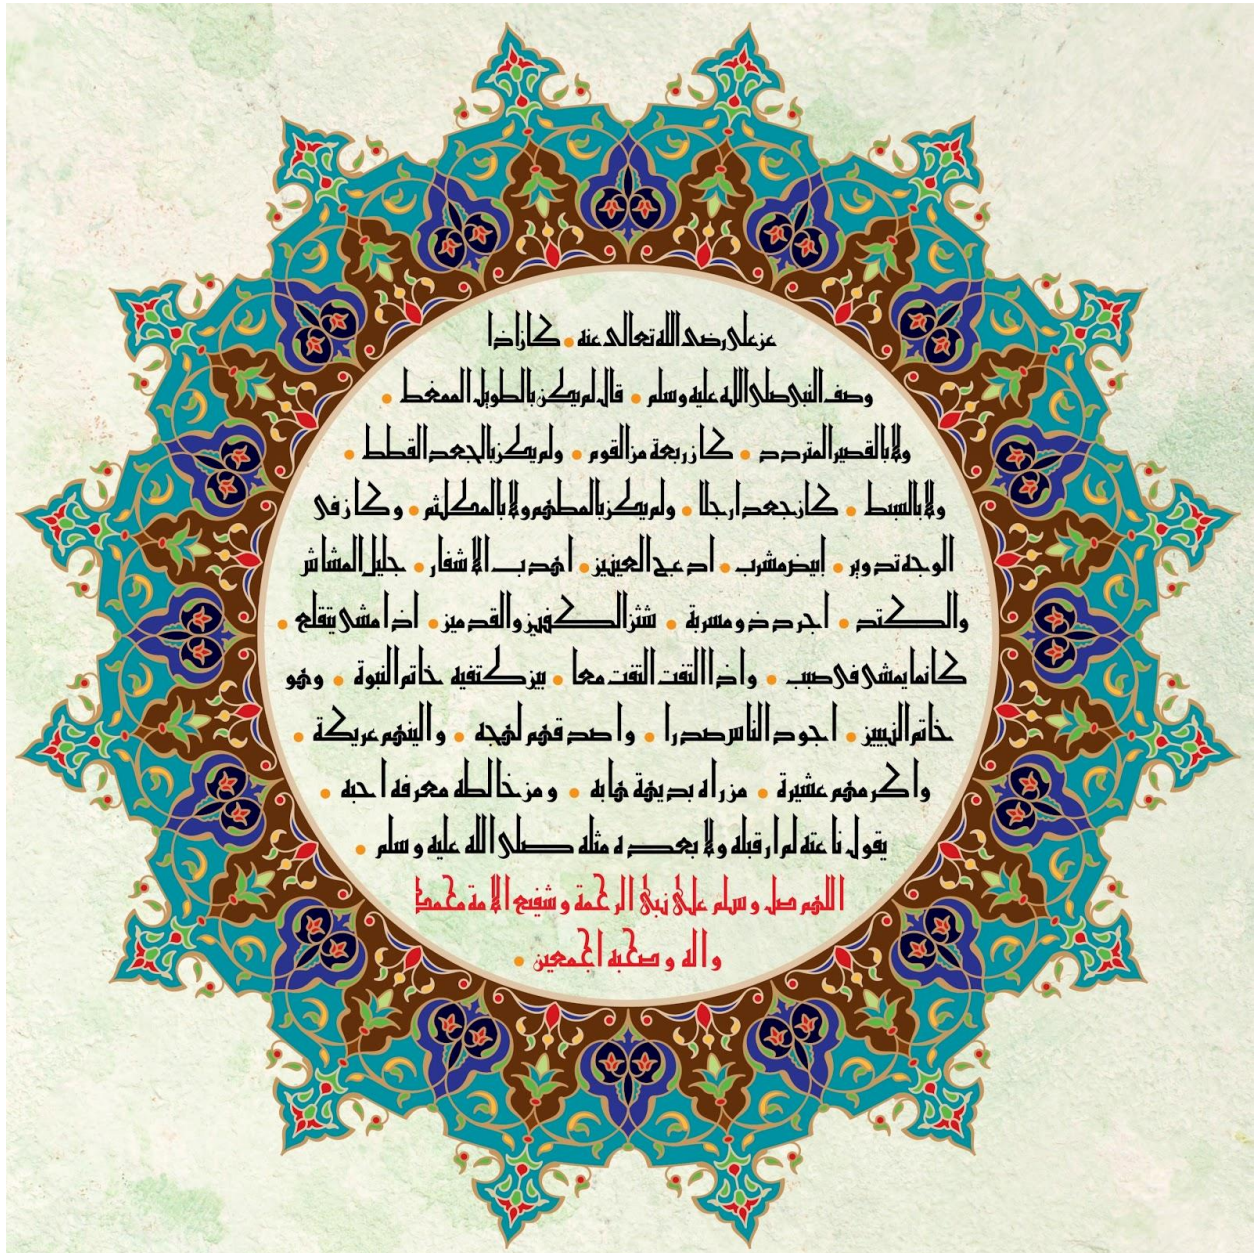 عن على رضى الله تعالى عنه • كان اذا
وصف النبى صلى الله عليه وسلم • قال لم يكن بالطويل الممغط •
ولا بالقصير المتردد • كان ربعة من القوم • ولم يكن بالجعد القطط •
ولا بالسبط • كان جعدا رجلا • ولم يكن بالمطهم ولا بالمكلثم • وكان فى
الوجه تدوير • ابيض مشرب • ادعج العينين • اهدب الاشفار • جليل المشاش
والكتد • اجرد ذو مسربة • شثن الكفين والقدمين • اذا مشى تقلع •
كانما يمشى فى صبب • واذا التفت التفت معا • بين كتفيه خاتم النبوة • وهو
خاتم النبيين • اجود الناس صدرا • واصدقهم لهجه • والينهم عريكة •
واكرمهم عشيرة • من راه بديهة هابه • ومن خالطه معرفه احبه •
يقول ناعته لم ار قبله ولا بعده مثله صلى الله عليه وسلم •
اللهم صل وسلم على نبى الرحمة وشفيع الامة محمد
واله وصحبه اجمعين •